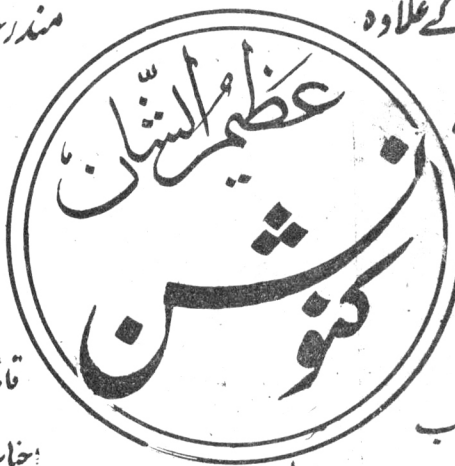 کے علاوہ
عظیم الشّان
کنونشن